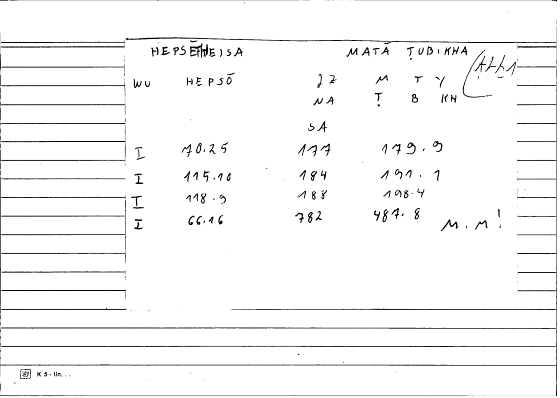 HEPSĒTHEISA MATĀ ṬUBIKHA
WU HEPSŌ JZ M T Y
NA Ṭ B KH
SA
I 70.25 177 179.9
I 115.10 184 191.1
I 118.9 188 198.4
I 66.16 782 487.8 M.M!
K 5 - lin...